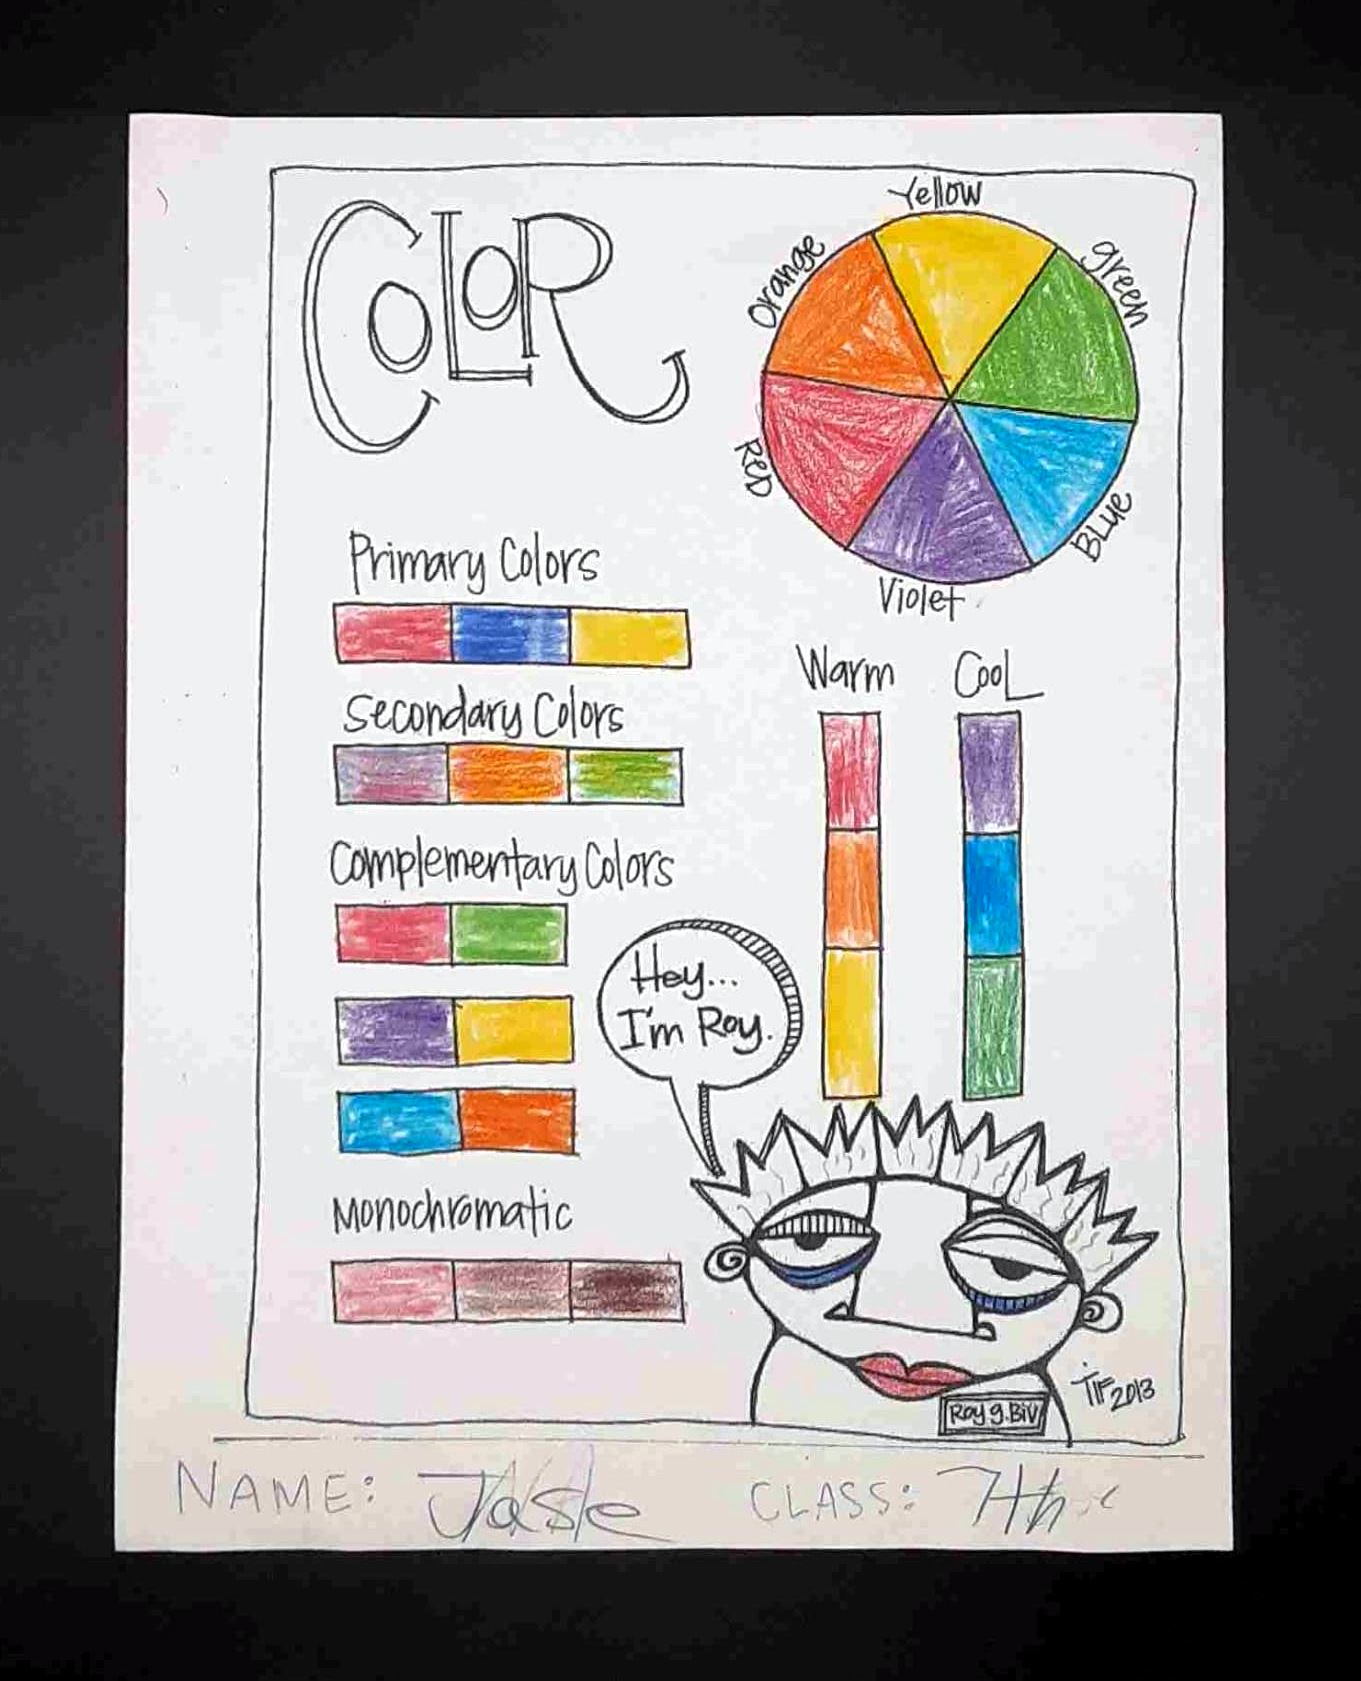 COLOR
Yellow
Orange
green
RED
BLUe
Violet
Primary Colors
Secondary Colors
Complementary Colors
Monochromatic
Warm
CooL
Hey...
I'm Roy.
Roy g. Biv
TIF 2013
NAME: Jase CLASS: 7th